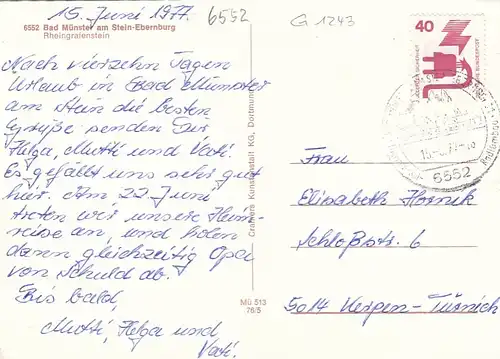 15. Juni 1977.
6552
G 1243
6552 Bad Münster am Stein-Ebernburg
Rheingrafenstein
Nach vierzehn Tagen
Urlaub in Bad Münster
am Stein die besten
Grüße senden Dir
Helga, Mutti und Vati.
Es gefällt uns sehr gut
hier. Am 22. Juni
treten wir unsere Heim-
reise an, und holen
dann gleichzeitig Opa
von Schuld ab.
Bis bald,
Mutti, Helga und
Vati.
Cramers Kunstanstalt KG, Dortmund
Mü 513
76/5
40
DEUTSCHE BUNDESPOST
6552
Frau
Elisabeth Hornik
Schloßstr. 6
5014 Kerpen-Türnich